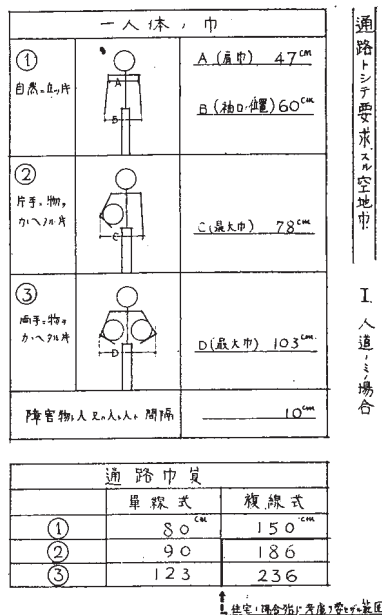 通路トシテ要求スル空地巾
I. 人道ノミノ場合
一人体ノ巾
①
自然ニ立ツ片
A
B
A (肩巾) 47cm
B (袖口ノ位置) 60cm
②
片手ニ物ヲ
カヽヘタル片
C
C (最大巾) 78cm
③
両手ニ物ヲ
カヽヘタル片
D
D (最大巾) 103cm
障害物ト人又ハ人ト人ト 間隔
10cm
通路巾員
單線式 複線式
① 80cm 150cm
② 90 186
③ 123 236
住宅ノ場合 考慮